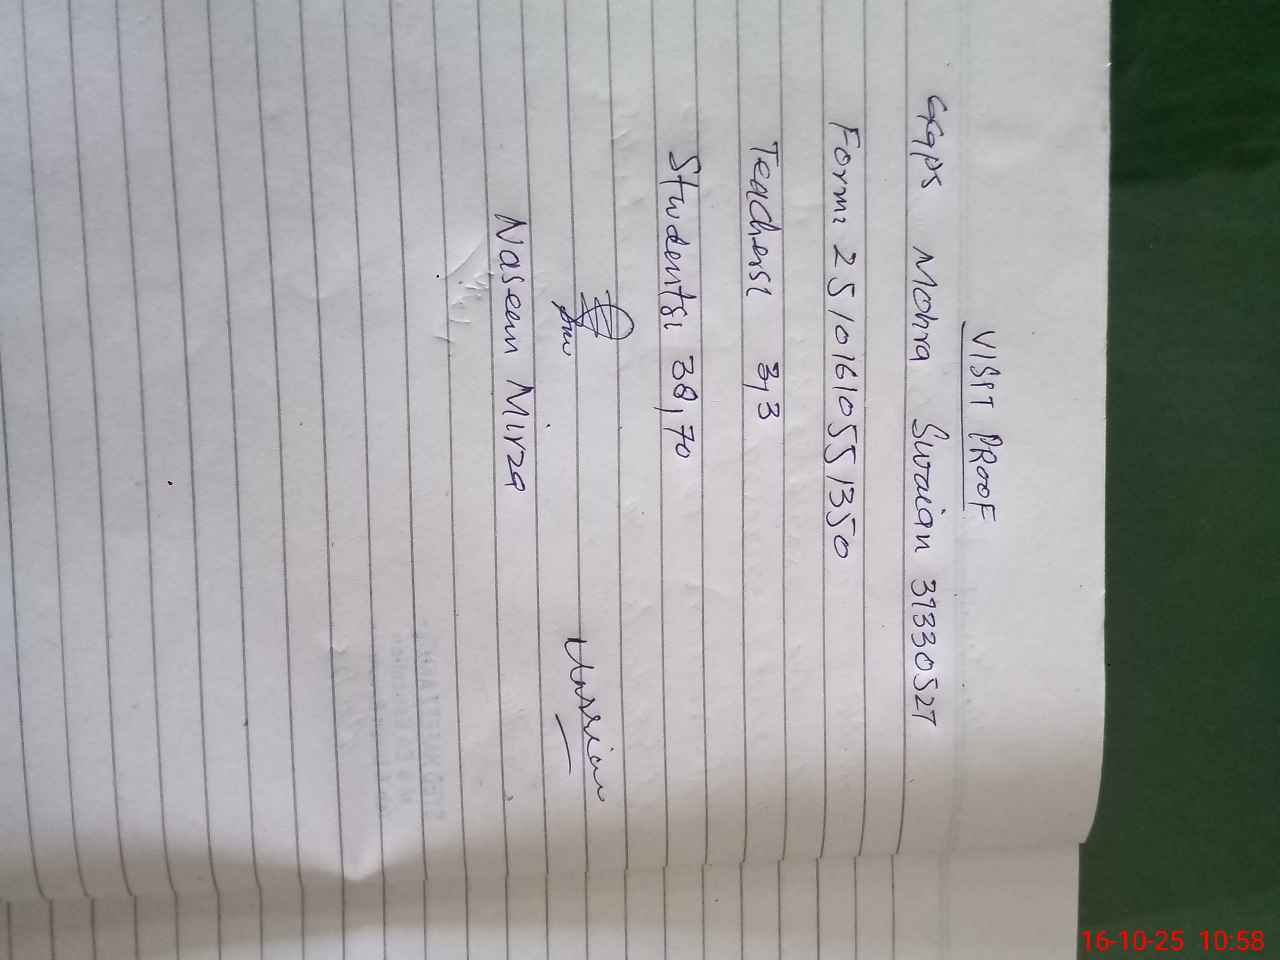 VISIT PROOF
GGPS Mohra Swaian 37330527
Form: 25101610551350
Teachers: 3,3
Students: 38,70
Naseem Mirza
16-10-25 10:58